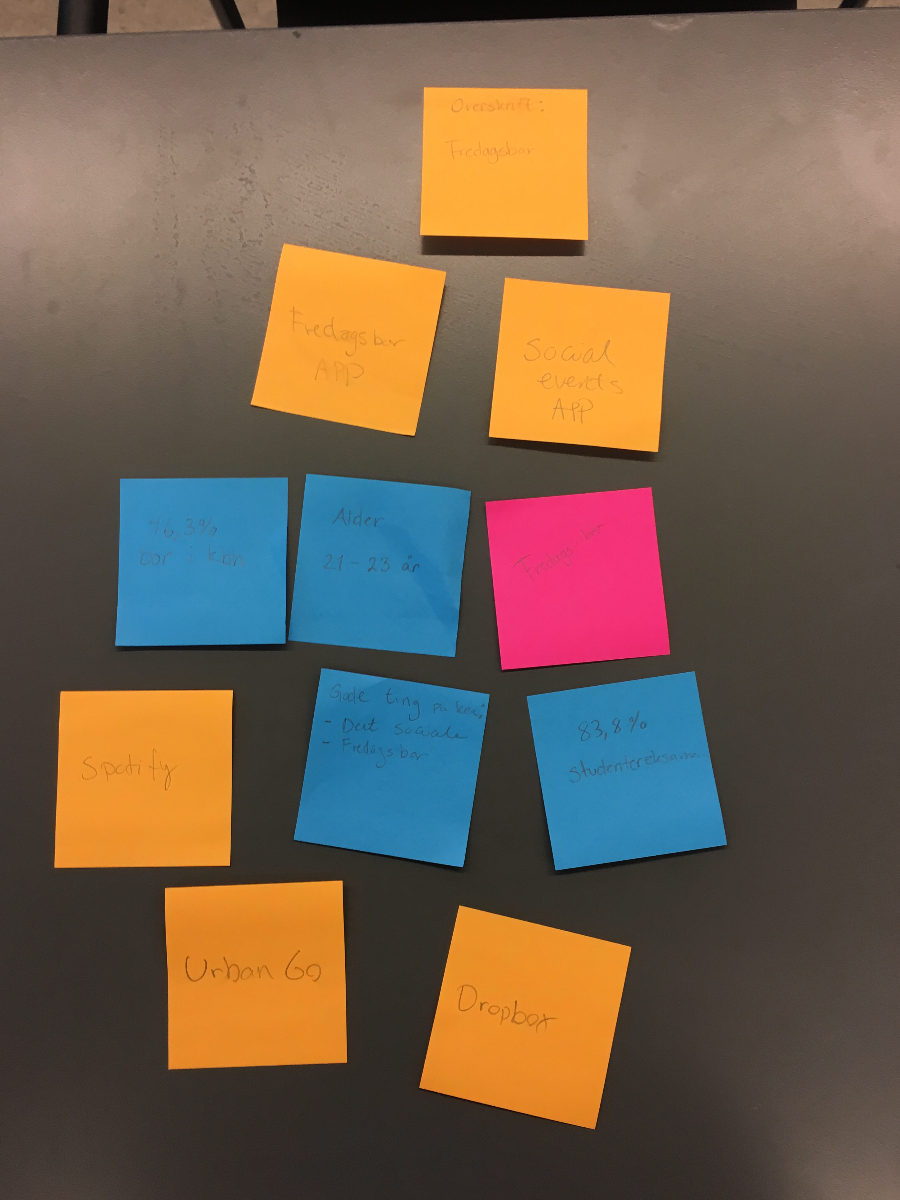 Overskrift:
Fredagsbar
Fredagsbar
APP
Social
events
APP
46,3%
bor i kbh
Alder
21 - 23 år
Fredagsbar
Spotify
Gode ting på
- Det sociale
- Fredagsbar
83,8%
Studentereksamen
Urban Go
Dropbox